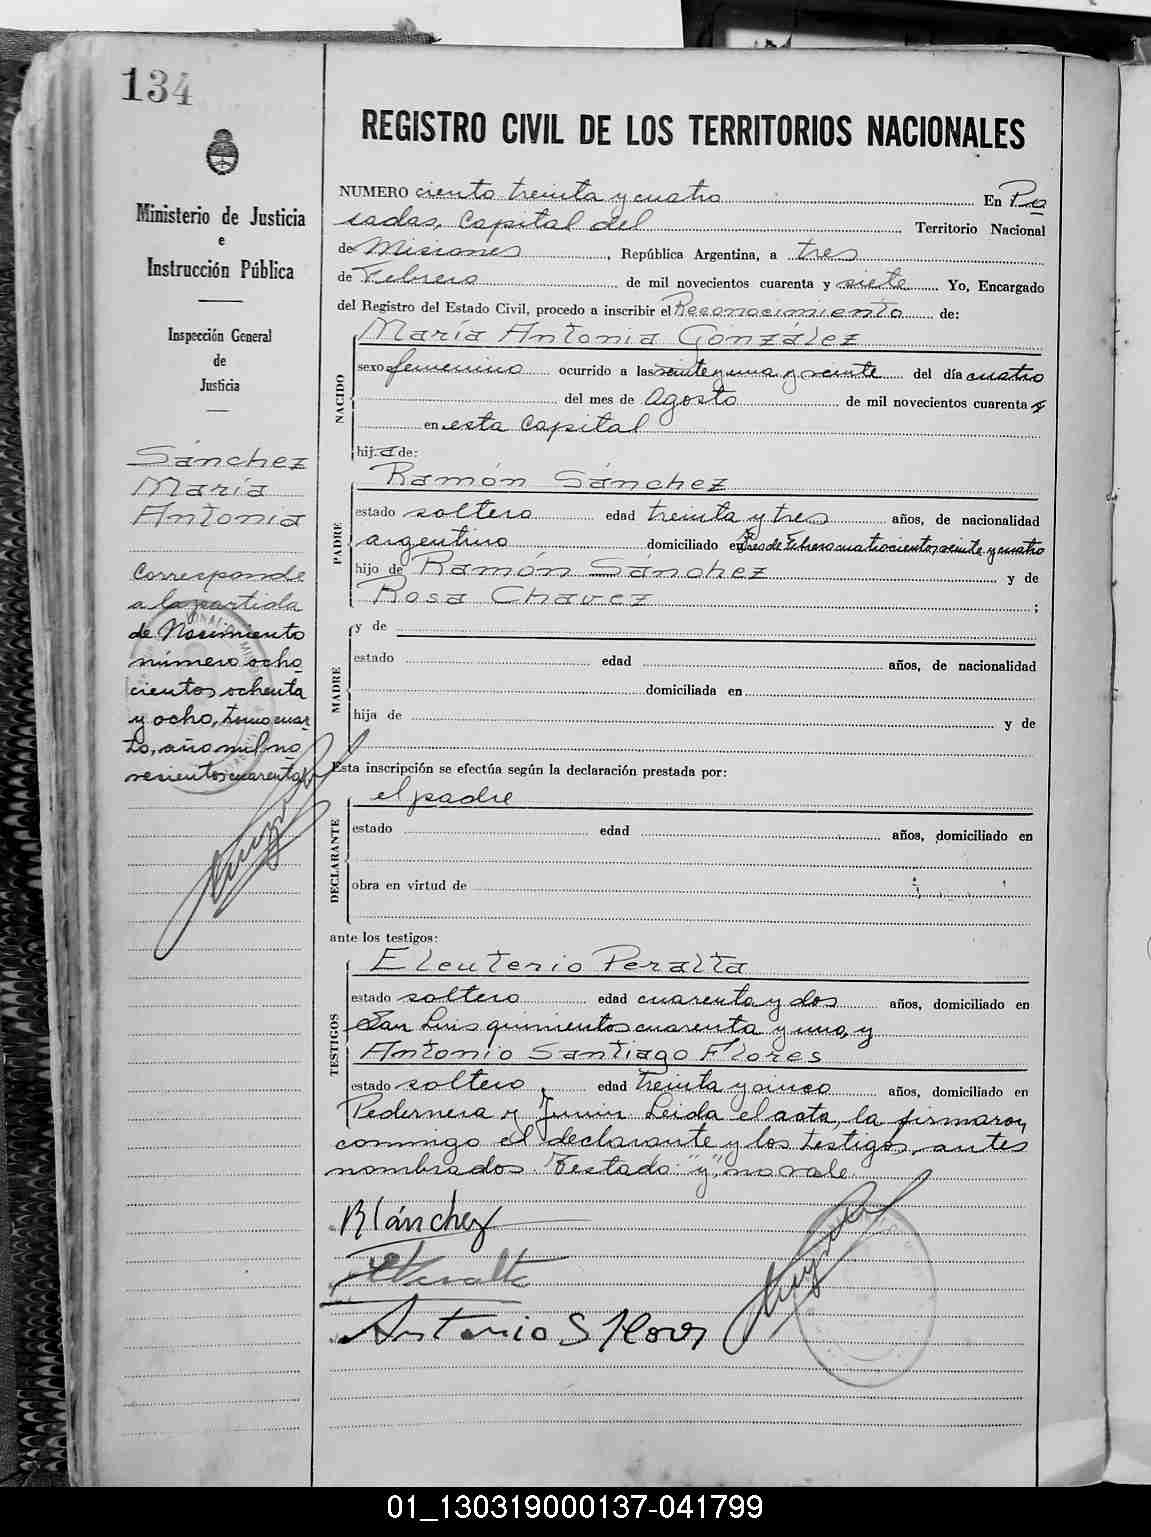 134
Ministerio de Justicia
e
Instrucción Pública
Inspección General
de
Justicia
Sánchez
María
Antonia
Corresponde
a la partida
de Nacimiento
número ocho
cientos ochenta
y ocho, tomo cuar
to, año mil no
vecientos cuarenta
REGISTRO CIVIL DE LOS TERRITORIOS NACIONALES
NUMERO ciento treinta y cuatro En Po
sadas, Capital del Territorio Nacional
de Misiones, República Argentina, a tres
de Febrero de mil novecientos cuarenta y siete Yo, Encargado
del Registro del Estado Civil, procedo a inscribir el Reconocimiento de:
María Antonia González
NACIDO
sexo femenino ocurrido a las veinte y una y veinte del día cuatro
del mes de Agosto de mil novecientos cuarenta y
en esta Capital
hija de:
Ramón Sánchez
PADRE
estado soltero edad treinta y tres años, de nacionalidad
argentino domiciliado en Tres de Febrero cuatrocientos veinte y cuatro
hijo de Ramón Sánchez y de
Rosa Chavez ;
MADRE
y de
estado edad años, de nacionalidad
domiciliada en
hija de y de
Esta inscripción se efectúa según la declaración prestada por:
el padre
DECLARANTE
estado edad años, domiciliado en
obra en virtud de
ante los testigos:
Eleuterio Peralta
TESTIGOS
estado soltero edad cuarenta y dos años, domiciliado en
San Luis quinientos cuarenta y uno, y
Antonio Santiago Flores
estado soltero, edad treinta y cinco años, domiciliado en
Pedernera y Junin Leida el acta, la firmaron
conmigo el declarante y los testigos, antes
nombrados. Testado: "y", no vale.
R Sánchez
EPeralta
Antonio S Flores
01_130319000137-041799